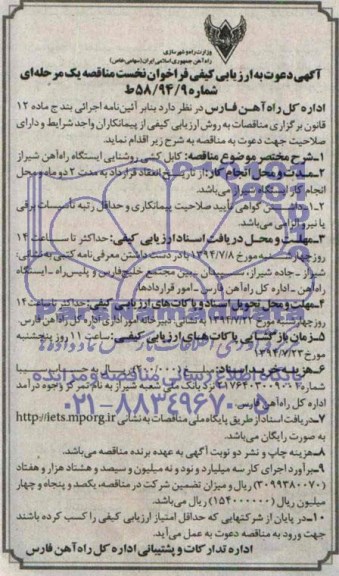 وزارت راه و شهرسازی
راه آهن جمهوری اسلامی ایران (سهامی خاص)
آگهی دعوت به ارزیابی کیفی فراخوان نخست مناقصه یک مرحله‌ای
شماره ۵۸/۹۴/۹ط
اداره کل راه‌آهن فارس در نظر دارد بنابر آئین‌نامه اجرائی بند ج ماده ۱۲
قانون برگزاری مناقصات به روش ارزیابی کیفی از پیمانکاران واجد شرایط و دارای
صلاحیت جهت دعوت به مناقصه به شرح زیر اقدام نماید.
۱-شرح مختصر موضوع مناقصه: کابل کشی روشنایی ایستگاه راه‌آهن شیراز
۲-مدت و محل انجام کار: از تاریخ انعقاد قرارداد به مدت ۲ دو ماه و محل
انجام کار ایستگاه شیراز می‌باشد.
گواهی تأیید صلاحیت پیمانکاری و حداقل رتبه تأسیسات برقی
یا نیرو الزامی می‌باشد.
۳-مهلت و محل دریافت اسناد ارزیابی کیفی: حداکثر تا ساعت ۱۴
روز چهارشنبه مورخ ۱۳۹۴/۷/۸ با در دست داشتن معرفی‌نامه کتبی به نشانی:
شیراز - جاده شیراز، سپیدان - بین مجتمع خلیج‌فارس و پلیس راه - ایستگاه
راه‌آهن - اداره کل راه‌آهن فارس - امور قراردادها
۴-مهلت و محل تحویل اسناد و پاکات‌های ارزیابی کیفی: حداکثر تا ساعت ۱۴
روز چهارشنبه مورخ ۱۳۹۴/۷/۲۲ به نشانی: دبیرخانه امور اداری اداره کل راه‌آهن فارس
۵-زمان بازگشایی پاکات‌های ارزیابی کیفی: ساعت ۱۱ روز پنجشنبه
مورخ ۱۳۹۴/۷/۲۳
۶-هزینه خرید اسناد: ریال به حساب سیبا
شماره ۲۱۷۶۴۰۳۰۰۹۰۰۴ بانک ملی شعبه شیراز به نام تمرکز وجوه درآمد
اداره کل راه‌آهن فارس
۷-دریافت اسناد از طریق پایگاه ملی مناقصات به نشانی http://iets.mporg.ir
به صورت رایگان می‌باشد.
۸-هزینه چاپ و نشر دو نوبت آگهی به عهده برنده مناقصه می‌باشد.
۹-برآورد اجرای کار سه میلیارد و نود و نه میلیون و سیصد و هشتاد هزار و هفتاد
(۳۰۹۹۳۸۰۰۷۰) ریال و میزان تضمین شرکت در مناقصه، یکصد و پنجاه و چهار
میلیون ریال (۱۵۴۰۰۰۰۰۰) ریال می‌باشد.
۱۰-در پایان از شرکتهایی که حداقل امتیاز ارزیابی کیفی را کسب کرده باشند
جهت ورود به مناقصه دعوت به عمل می‌آید.
اداره تدارکات و پشتیبانی اداره کل راه‌آهن فارس
ParsNamadData
پایگاه اطلاع رسانی مناقصه و مزایده
۰۲۱-۸۸۳۴۹۶۷۰-۵